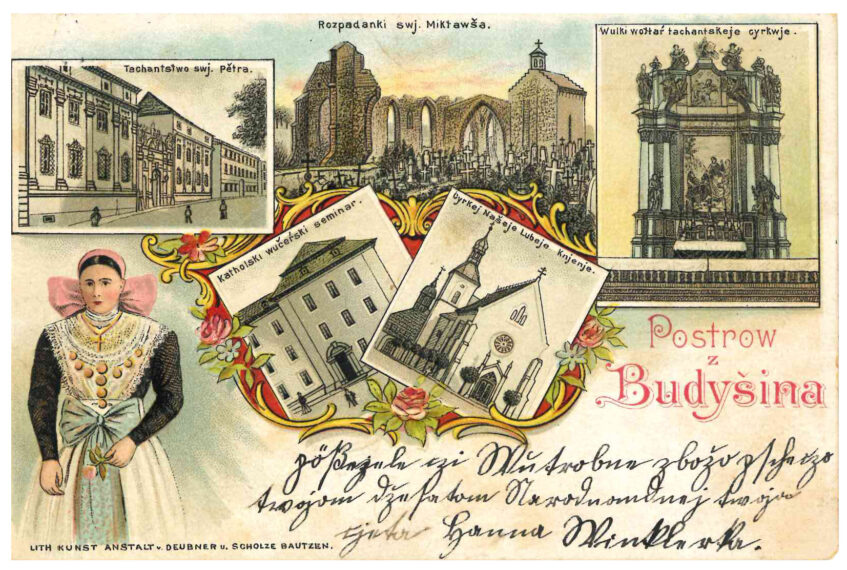 Rozpadanki swj. Mikławša.
Tachantstwo swj. Pětra.
Wulki wołtaŕ tachantskeje cyrkwje.
Katholski wučeŕski seminar.
Cyrkej Našeje Lubeje knjenje.
Postrow
z
Budyšina
pößczele czi Wutrobne zbožo pscheczo
twojom dżesatom Narodnomdnej twoja
czeta Hanna Winklerka.
LITH KUNST ANSTALT v. DEUBNER u. SCHOLZE BAUTZEN.